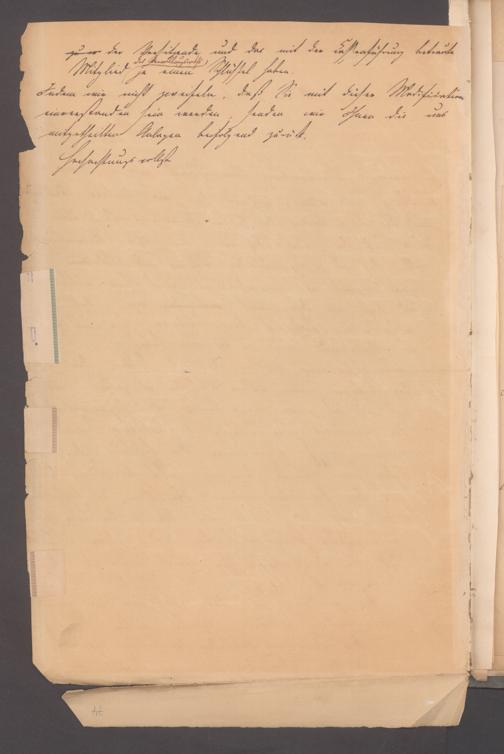 der Vorsitzende und das mit der Kassenführung betraute
Mitglied des Verwaltungsraths je einen Schlüssel haben.
Indem wir nicht zweifeln, daß Sie mit dieser Modification
einverstanden sein werden, senden wir Ihnen die uns
mitgetheilten Anlagen beifolgend zurück.
Hochachtungsvollst